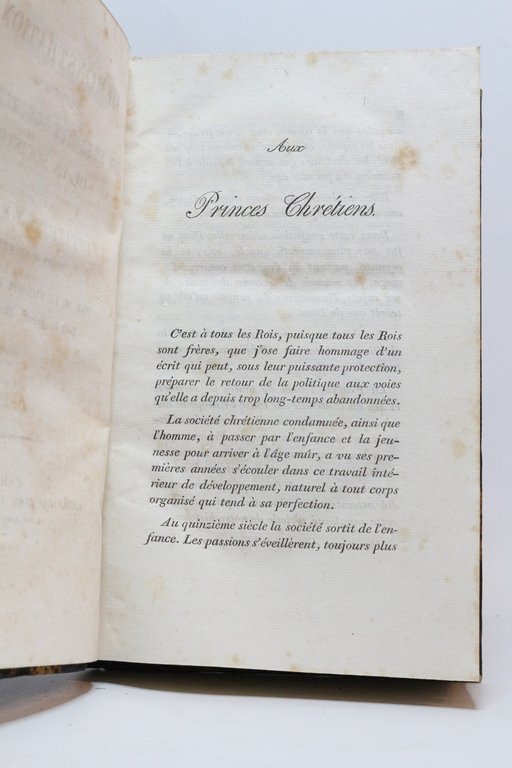 Aux
Princes Chrétiens.
C'est à tous les Rois, puisque tous les Rois
sont frères, que j'ose faire hommage d'un
écrit qui peut, sous leur puissante protection,
préparer le retour de la politique aux voies
qu'elle a depuis trop long-temps abandonnées.
La société chrétienne condamnée, ainsi que
l'homme, à passer par l'enfance et la jeu-
nesse pour arriver à l'âge mûr, a vu ses pre-
mières années s'écouler dans ce travail inté-
rieur de développement, naturel à tout corps
organisé qui tend à sa perfection.
Au quinzième siècle la société sortit de l'en-
fance. Les passions s'éveillèrent, toujours plus